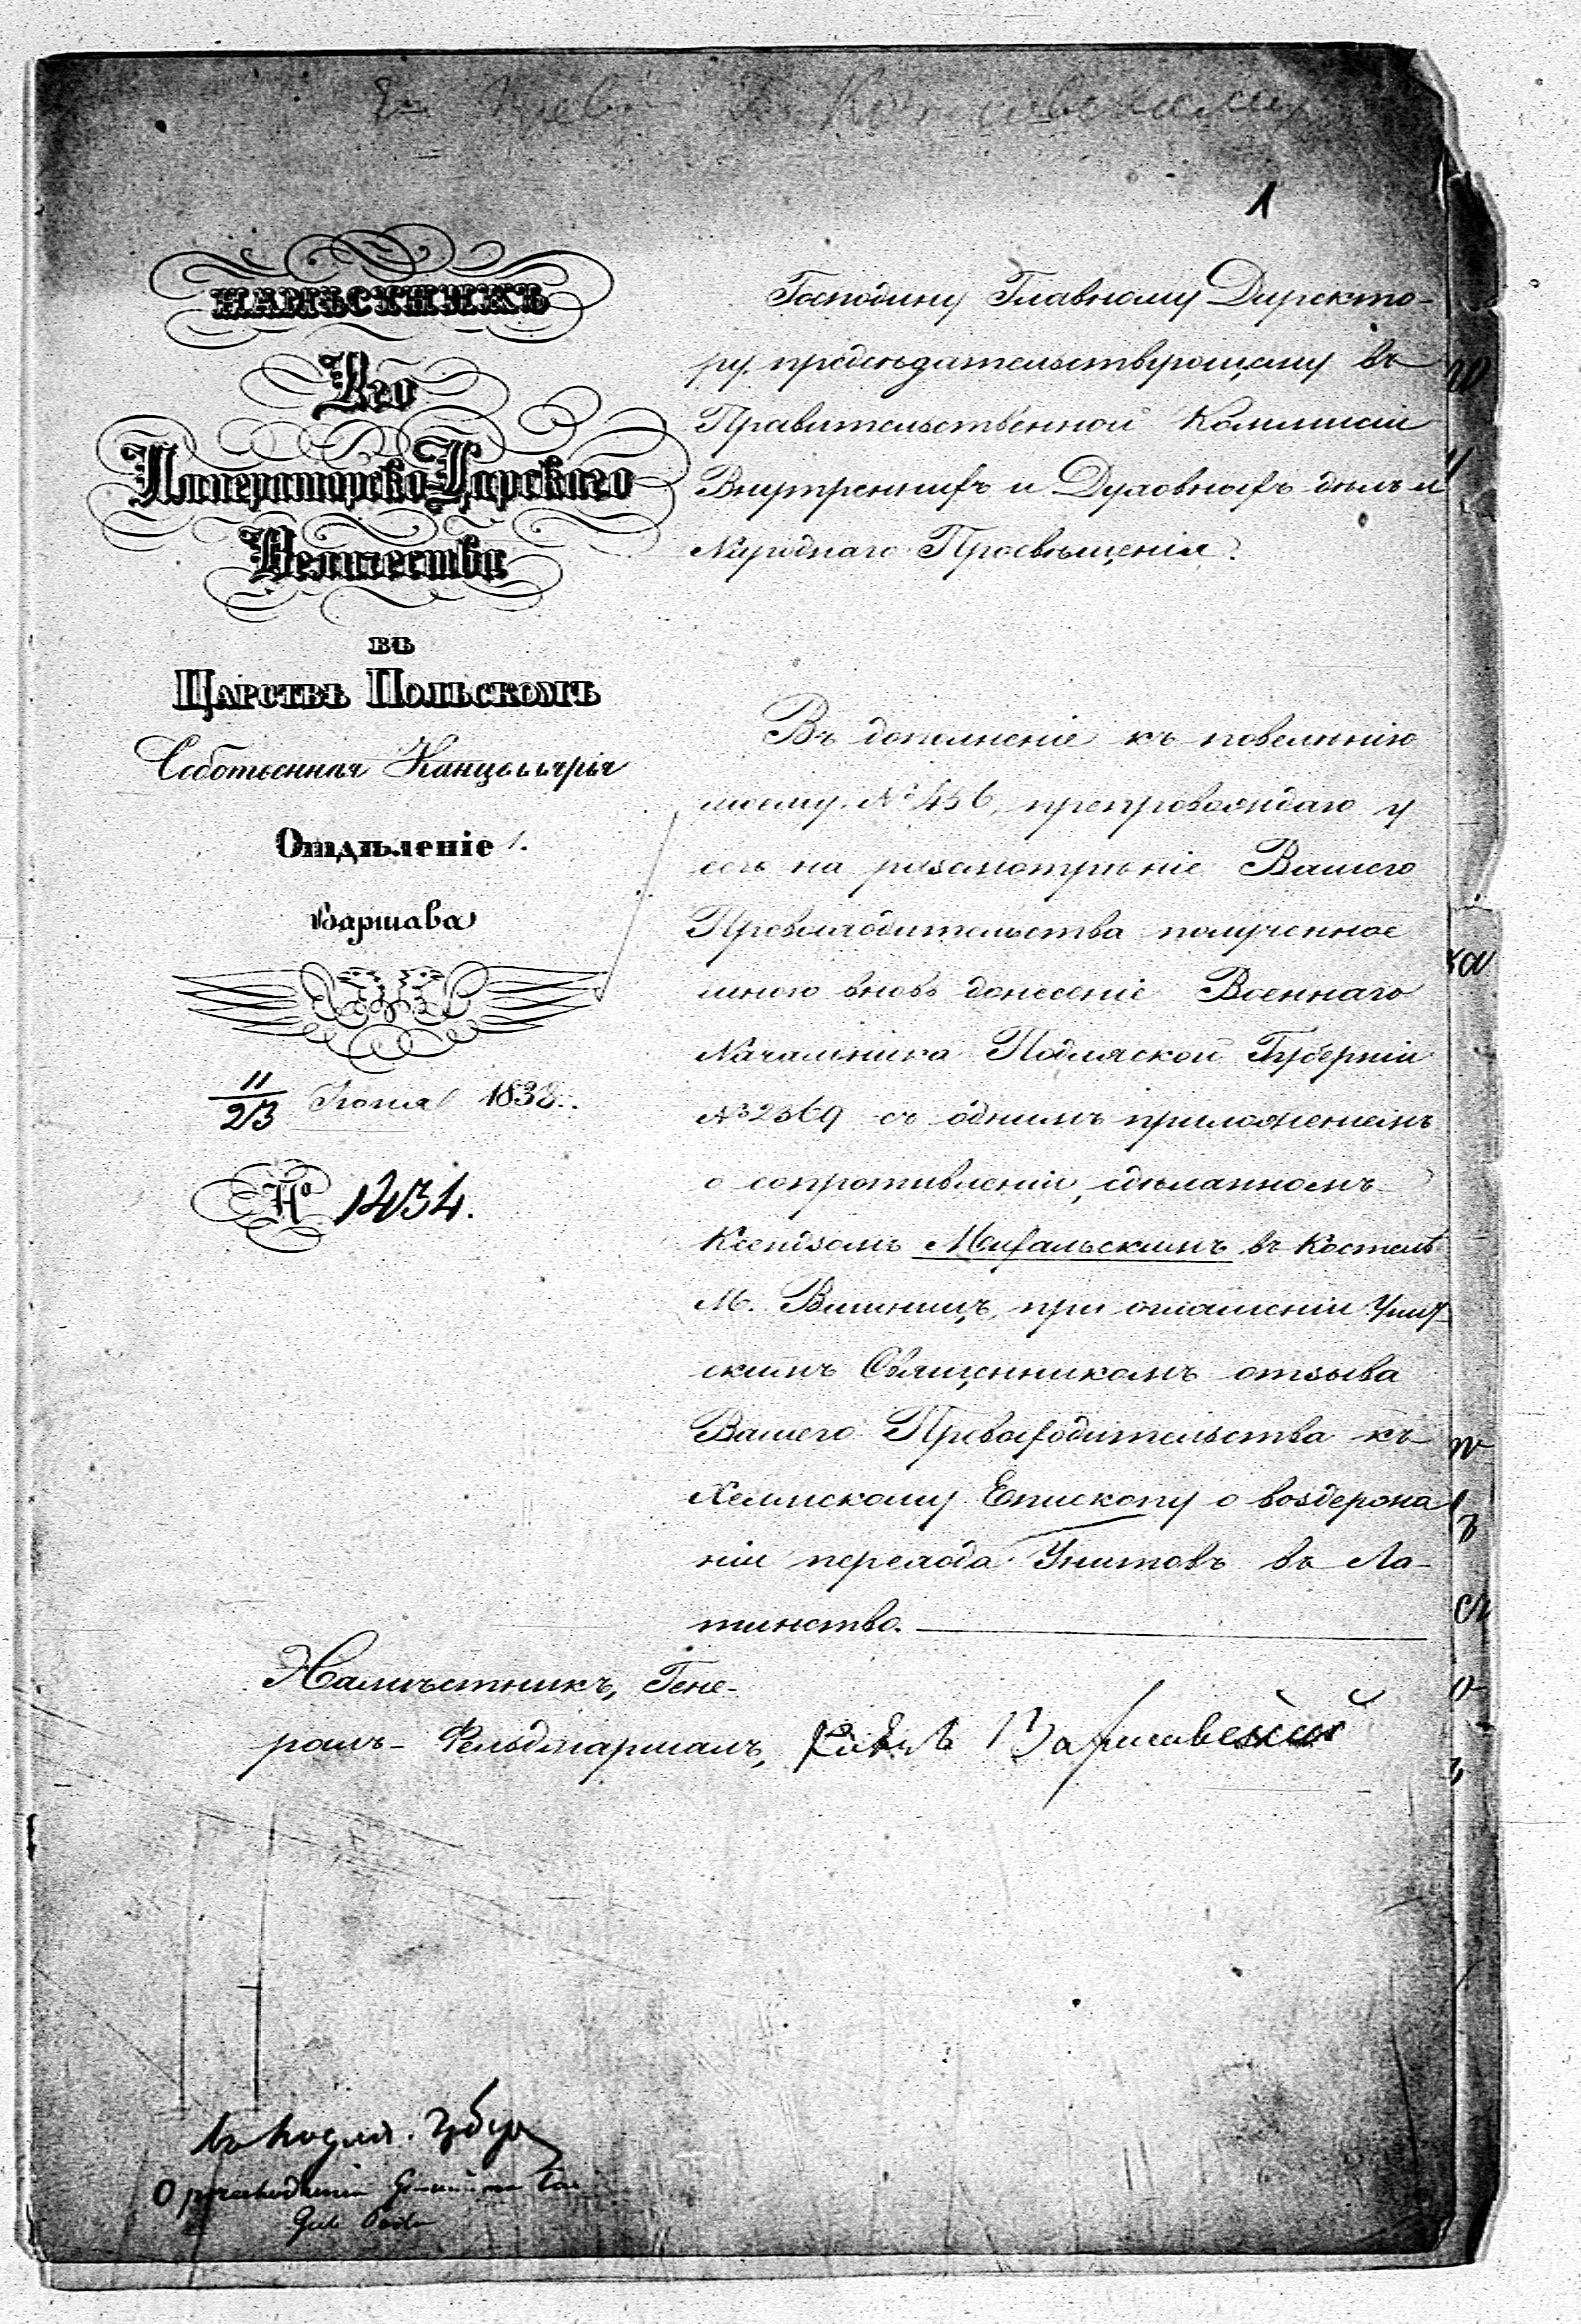 1
НАМѢСТНИКЪ
Его
Императорско-Царскаго
Величества
въ
Царствѣ Польскомъ
Собственная Канцелярія
Отдѣленіе 1.
Варшава
11/23 Іюня 1838.
№ 1434.
Господину Главному Директо-
ру, предсѣдательствующему въ
Правительственной Коммисіи
Внутреннихъ и Духовныхъ дѣлъ и
Народнаго Просвѣщенія.
Въ дополненіе къ повелѣнію
моему № 456, препровождаю у
сего на разсмотрѣніе Вашего
Превосходительства полученное
мною вновь донесеніе Военнаго
Начальника Подляской Губерніи
№ 2369 съ однимъ приложеніемъ
о сопротивленіи, сдѣланномъ
Ксендзомъ Михальскимъ въ Костелѣ
М. Вишницъ, при оглашеніи Уніят-
скимъ Священникомъ отзыва
Вашего Превосходительства къ
Хелмскому Епископу о воздержа
ніи перехода Унитовъ въ Ла-
тинство.
Намѣстникъ, Гене-
ралъ-Фельдмаршалъ, Князь Варшавскій
Губер
O przechodzeniu
Gub Podl